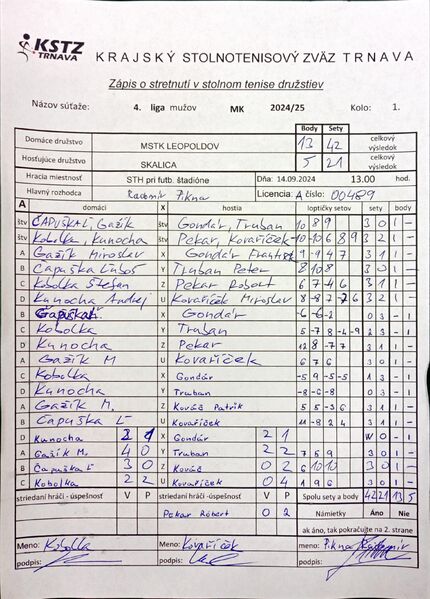 KSTZ
TRNAVA
KRAJSKÝ STOLNOTENISOVÝ ZVÄZ TRNAVA
Zápis o stretnutí v stolnom tenise družstiev
Názov súťaže: 4. liga mužov MK 2024/25 Kolo: 1.
Body Sety
Domáce družstvo MSTK LEOPOLDOV 13 42 celkový výsledok
Hosťujúce družstvo SKALICA 5 21 celkový výsledok
Hracia miestnosť STH pri futb. štadióne Dňa: 14.09.2024 13.00 hod.
Hlavný rozhodca Radomír Pikna Licencia: A číslo: 00489
A domáci X hostia loptičky setov sety body
štv ČAPUŠKA Ľ, Gažík štv Gondár, Truban 10 8 9 3 0 1 -
štv Kobolka, Kunocha štv Pekar, Kovaříček -10 -10 6 8 9 3 2 1 -
A Gažík Miroslav X Gondár František 9 -9 4 7 3 1 1 -
B Čapuška Ľuboš Y Truban Peter 8 10 8 3 0 1 -
C Kobolka Štefan Z Pekar Robert 6 7 -4 6 3 1 1 -
D Kunocha Andrej U Kovaříček Miroslav 8 -8 7 -7 6 3 2 1 -
B Čapuška Ľ X Gondár -6 -6 -2 0 3 - 1
C Kobolka Y Truban 5 -7 8 -4 -9 2 3 - 1
D Kunocha Z Pekar 12 8 -7 7 3 1 1 -
A Gažík M U Kovaříček 6 7 6 3 0 1 -
C Kobolka X Gondár -5 9 -5 -5 1 3 - 1
D Kunocha Y Truban -8 -6 -8 0 3 - 1
A Gažík M. Z Kováč Patrik 5 5 -3 6 3 1 1 -
B Čapuška Ľ U Kovaříček 11 -8 2 4 3 1 1 -
D Kunocha X Gondár 2 1 W 0 - 1
A Gažík M. 4 0 Y Truban 2 2 7 5 9 3 0 1 -
B Čapuška Ľ 3 0 Z Kováč 0 2 6 10 10 3 0 1 -
C Kobolka 2 2 U Kovaříček 0 4 1 9 6 3 0 1 -
striedaní hráči - úspešnosť V P striedaní hráči - úspešnosť V P Spolu sety a body 42 21 13 5
Pekar Róbert 0 2 Námietky Áno Nie
ak áno, tak pokračujte na 2. strane
Meno: Kobolka Meno: Kovaříček meno: Pikna Radomír
podpis: podpis: podpis: